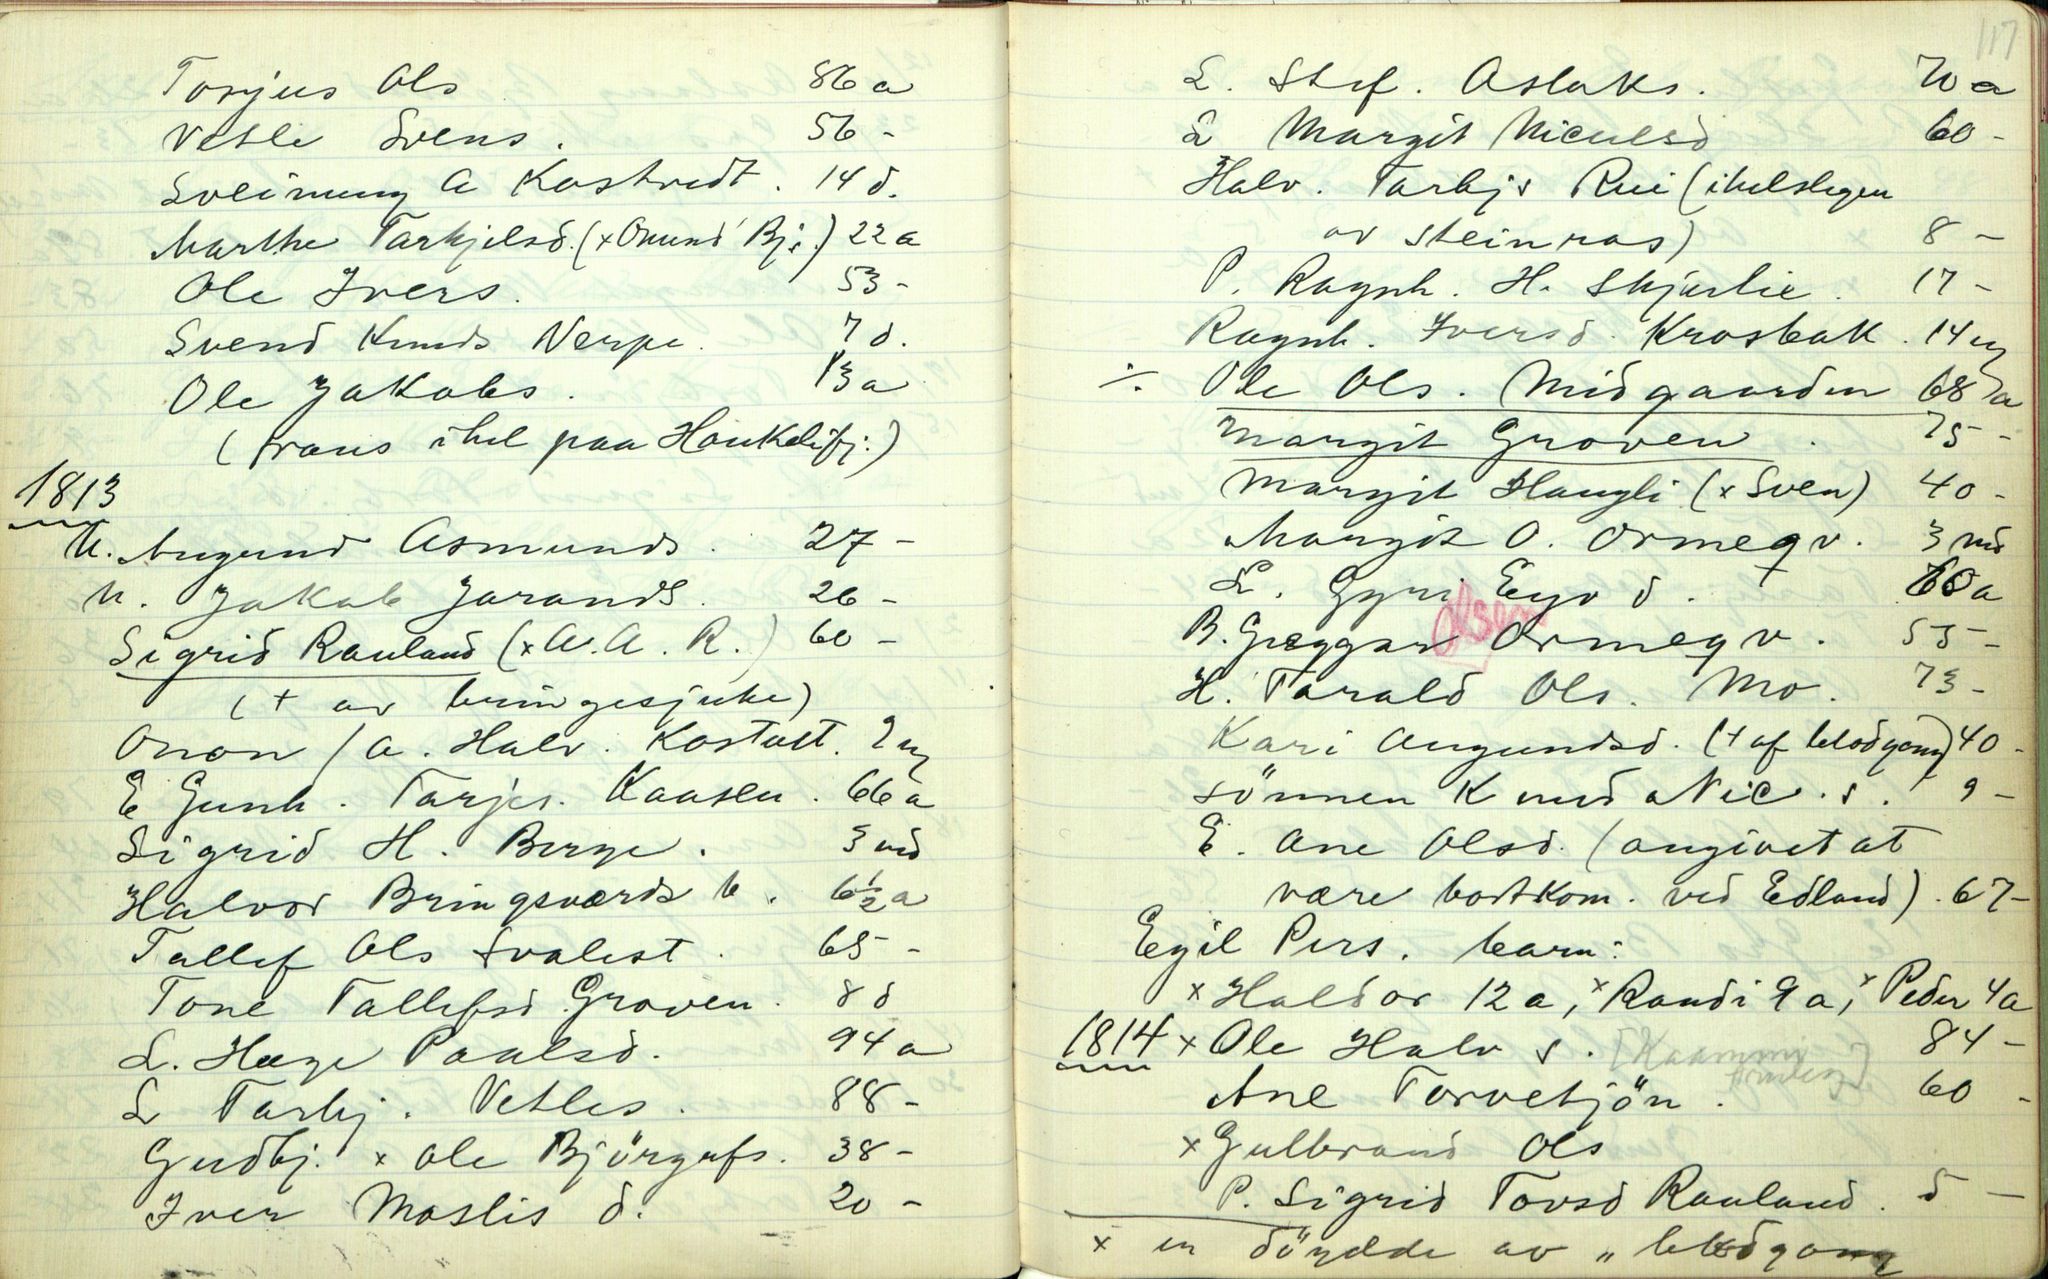 Torjus Ols 86 a
Vetle Svens. 56 -
Sveinung A Kostvedt. 14 d.
Marthe Tarkjelsd. (x Onund Bj.) 22 a
Ole Ivers. 53 -
Svend Knuds Nerpe. 7 d.
Ole Jakobs. 13 a
(fraus ihel paa Haukelifj.)
1813
U. Augund Asmunds. 27 -
U. Jakob Jarands. 26 -
Sigrid Rauland (x A. A. R.) 60 -
(+ av bringesjuke)
Onon / a. Halv. Kostvtt. 2 u
E Gunh. Tarjes. Kaasen. 66 a
Sigrid H. Berge. 3 md
Halvor Bringsværds b. 6½ a
Tallef Ols Svalest. 65 -
Tone Tallefsd. Groven. 8 d
L. Hæge Paalsd. 94 a
L Tarbj. Vetles. 88 -
Gudbj. x Ole Björgufs. 38 -
Iver Moslis d. 20 -
117
L. Stef. Aslaks. 70 a
L Margit Niculsd 60 -
Halv. Tarbjs Rui (ihelslegen
av steinras) 8 -
P. Ragnh. H. Skjærlie. 17 -
Ragnh. Iversd. Krosbak. 14 u
÷ Ole Ols. Midgaarden 68 a
Margit Groven. 75 -
Margit Haugli (x Sven) 40 -
Margit O. Ormeqv. 3 md
L. Gyri Eyv d. 60 a
Olsen
B. Greggar Ormeqv. 55 -
H. Tarald Ols. Mo. 73 -
Kari Augundsd. (+ af blodgang) 40 -
sönnen Knud Nic. s. 9 -
E. Ane Olsd. (angivet at
være bortkom. ved Edland). 67 -
Egil Pers. barn:
x Haldor 12 a, x Randi 9 a, x Peder 4 a
1814 x Ole Halv s. [Kaammi 84 -
Ane Torvetjön. 60 -
x Gulbrand Ols
P. Sigrid Tovsd Rauland. 5 -
x er döydde av „ blodgang